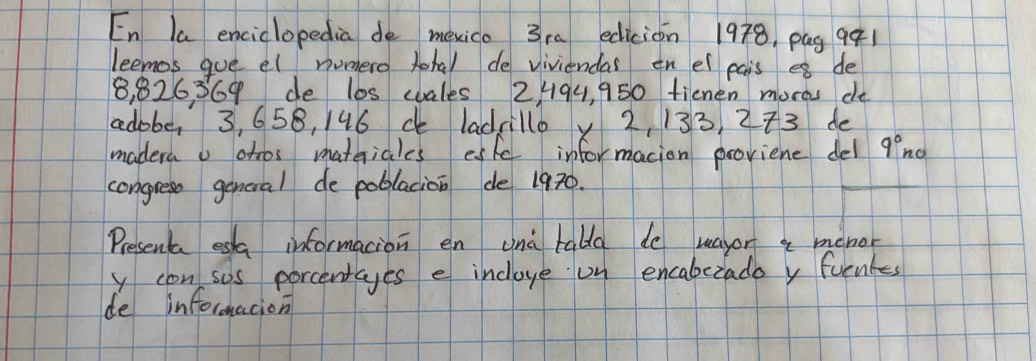 En la enciclopedia de mexico 3ra edición 1978, pag 941
leemos que el numero total de viviendas en el pais es de
8,826,369 de los cuales 2,494,950 tienen moros de
adobe, 3,658,146 de ladrillo y 2,133,273 de
madera u otros materiales este informacion proviene del 9°no
congreso general de poblacion de 1970.
Presenta esta información en una tabla de mayor a menor
y con sus porcentayes e incluye un encabezado y fuentes
de información